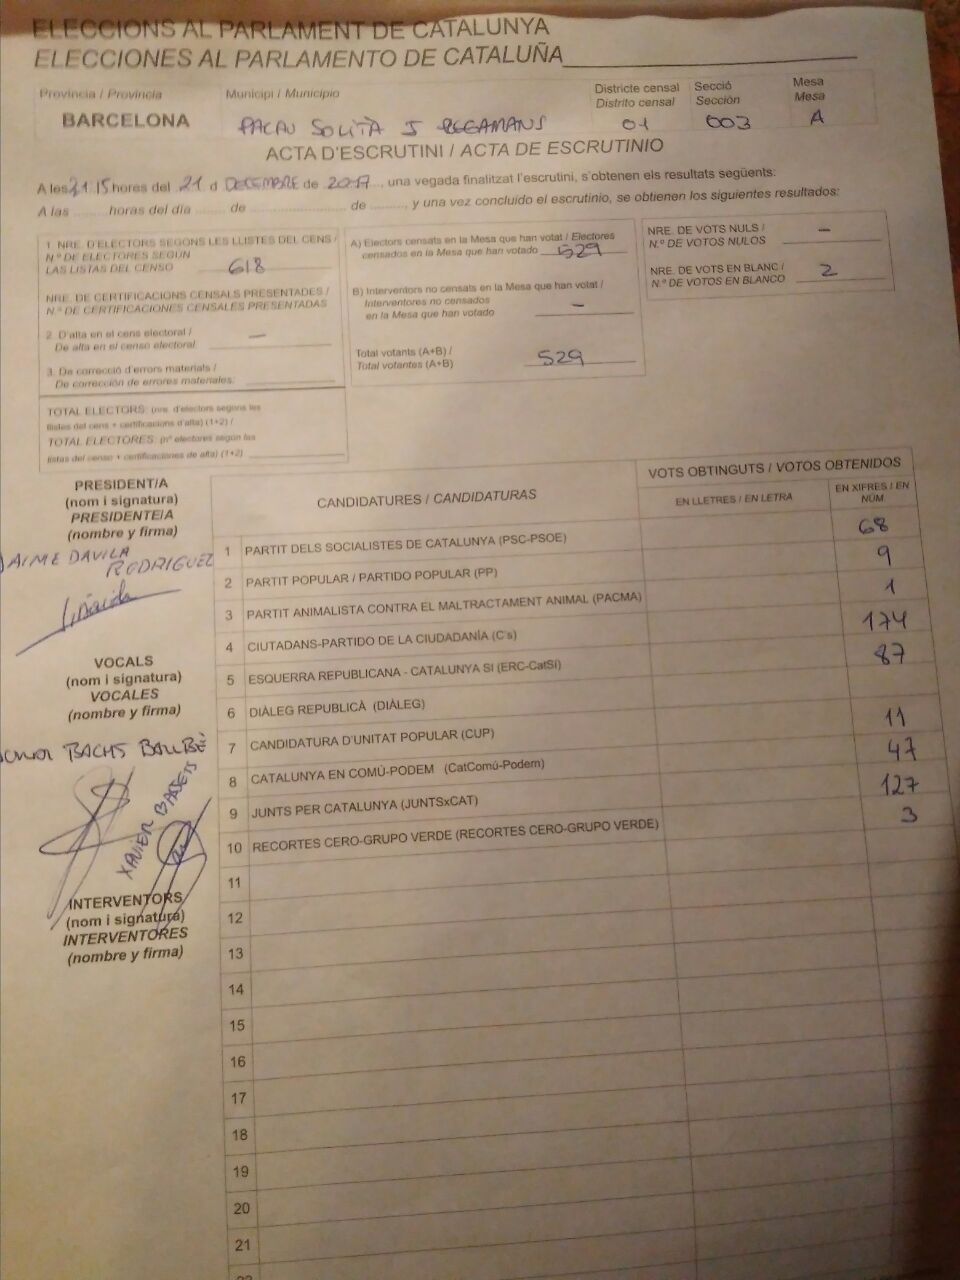 ELECCIONS AL PARLAMENT DE CATALUNYA
ELECCIONES AL PARLAMENTO DE CATALUÑA
Provincia / Provincia Municipi / Municipio Districte censal Secció Mesa
Distrito censal Sección Mesa
BARCELONA PALAU SOLITÀ I PLEGAMANS 01 003 A
ACTA D'ESCRUTINI / ACTA DE ESCRUTINIO
A les 21.15 hores del 21 d DECEMBRE de 2017, una vegada finalitzat l'escrutini, s'obtenen els resultats següents:
A las ........ horas del día ....... de ...................... de ........, y una vez concluido el escrutinio, se obtienen los siguientes resultados:
1. NRE. D'ELECTORS SEGONS LES LLISTES DEL CENS /
N.º DE ELECTORES SEGÚN
LAS LISTAS DEL CENSO 618
NRE. DE CERTIFICACIONS CENSALS PRESENTADES /
N.º DE CERTIFICACIONES CENSALES PRESENTADAS
2. D'alta en el cens electoral / —
De alta en el censo electoral:
3. De correcció d'errors materials /
De corrección de errores materiales:
TOTAL ELECTORS: (nre. d'electors segons les
llistes del cens + certificacions d'alta) (1+2) /
TOTAL ELECTORES: (nº electores según las
listas del censo + certificaciones de alta) (1+2)
A) Electors censats en la Mesa que han votat / Electores
censados en la Mesa que han votado 529
B) Interventors no censats en la Mesa que han votat /
Interventores no censados
en la Mesa que han votado —
Total votants (A+B) /
Total votantes (A+B) 529
NRE. DE VOTS NULS /
N.º DE VOTOS NULOS —
NRE. DE VOTS EN BLANC /
N.º DE VOTOS EN BLANCO 2
PRESIDENT/A
(nom i signatura)
PRESIDENTE/A
(nombre y firma)
JAIME DAVILA
RODRIGUEZ
VOCALS
(nom i signatura)
VOCALES
(nombre y firma)
BACHS BALLBÈ
XAVIER
INTERVENTORS
(nom i signatura)
INTERVENTORES
(nombre y firma)
CANDIDATURES / CANDIDATURAS VOTS OBTINGUTS / VOTOS OBTENIDOS
EN LLETRES / EN LETRA EN XIFRES / EN NÚM
1 PARTIT DELS SOCIALISTES DE CATALUNYA (PSC-PSOE) 68
2 PARTIT POPULAR / PARTIDO POPULAR (PP) 9
3 PARTIT ANIMALISTA CONTRA EL MALTRACTAMENT ANIMAL (PACMA) 1
4 CIUTADANS-PARTIDO DE LA CIUDADANÍA (C's) 174
5 ESQUERRA REPUBLICANA - CATALUNYA SI (ERC-CatSí) 87
6 DIÀLEG REPUBLICÀ (DIÀLEG)
7 CANDIDATURA D'UNITAT POPULAR (CUP) 11
8 CATALUNYA EN COMÚ-PODEM (CatComú-Podem) 47
9 JUNTS PER CATALUNYA (JUNTSxCAT) 127
10 RECORTES CERO-GRUPO VERDE (RECORTES CERO-GRUPO VERDE) 3
11
12
13
14
15
16
17
18
19
20
21